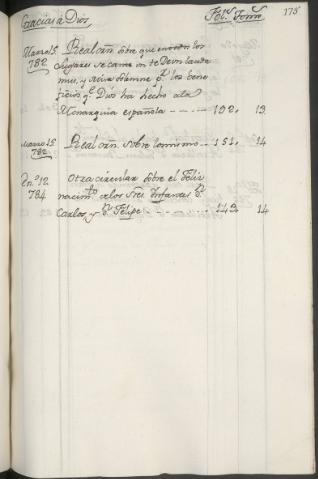 Gracias a Dios Fol.s Tom.s 175
Marzo 15 Real orñ. sobre que en todos los
782. Lugares se cante un te Deum lauda
mus, y misa solemne p.r los bene
ficios q.e Dios ha hecho a la
Monarquia española 192. 13
Marzo 15 Real orñ. sobre lo mismo 151. 14
782.
En.o 12 Otra circular sobre el feliz
784 nacim.to de los Sres. Infantes D.n
Carlos, y D.n Felipe 143 14